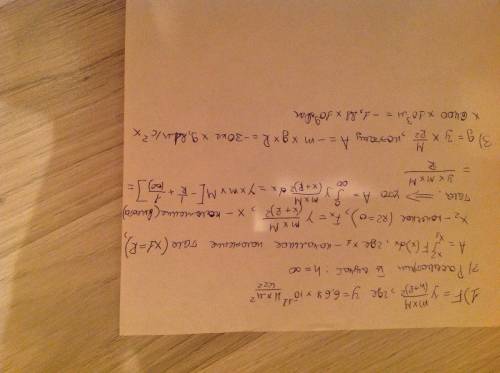 1) F = γ m×M/(h+R)², где γ = 6,67 × 10⁻¹¹ Н×м²/кг²
2) Рассмотрим й случай: h = ∞
A = ∫ F(x)dx, где x₁ - начальное положение тела (x1=R),
x₂ - конечное (x2=0), Fₓ = γ m×M/(x+R)², x - положение
тела. => что A = ∫ γ m×M/(x+R)² dx = γ×m×M[-1/R + 1/∞] =
= γ×m×M/R
3) g = γ × M/R², поэтому A = -m×g×R = -30кг × 9,8м/с² ×
× 6400 × 10³м = -1,88 × 10⁹Дж